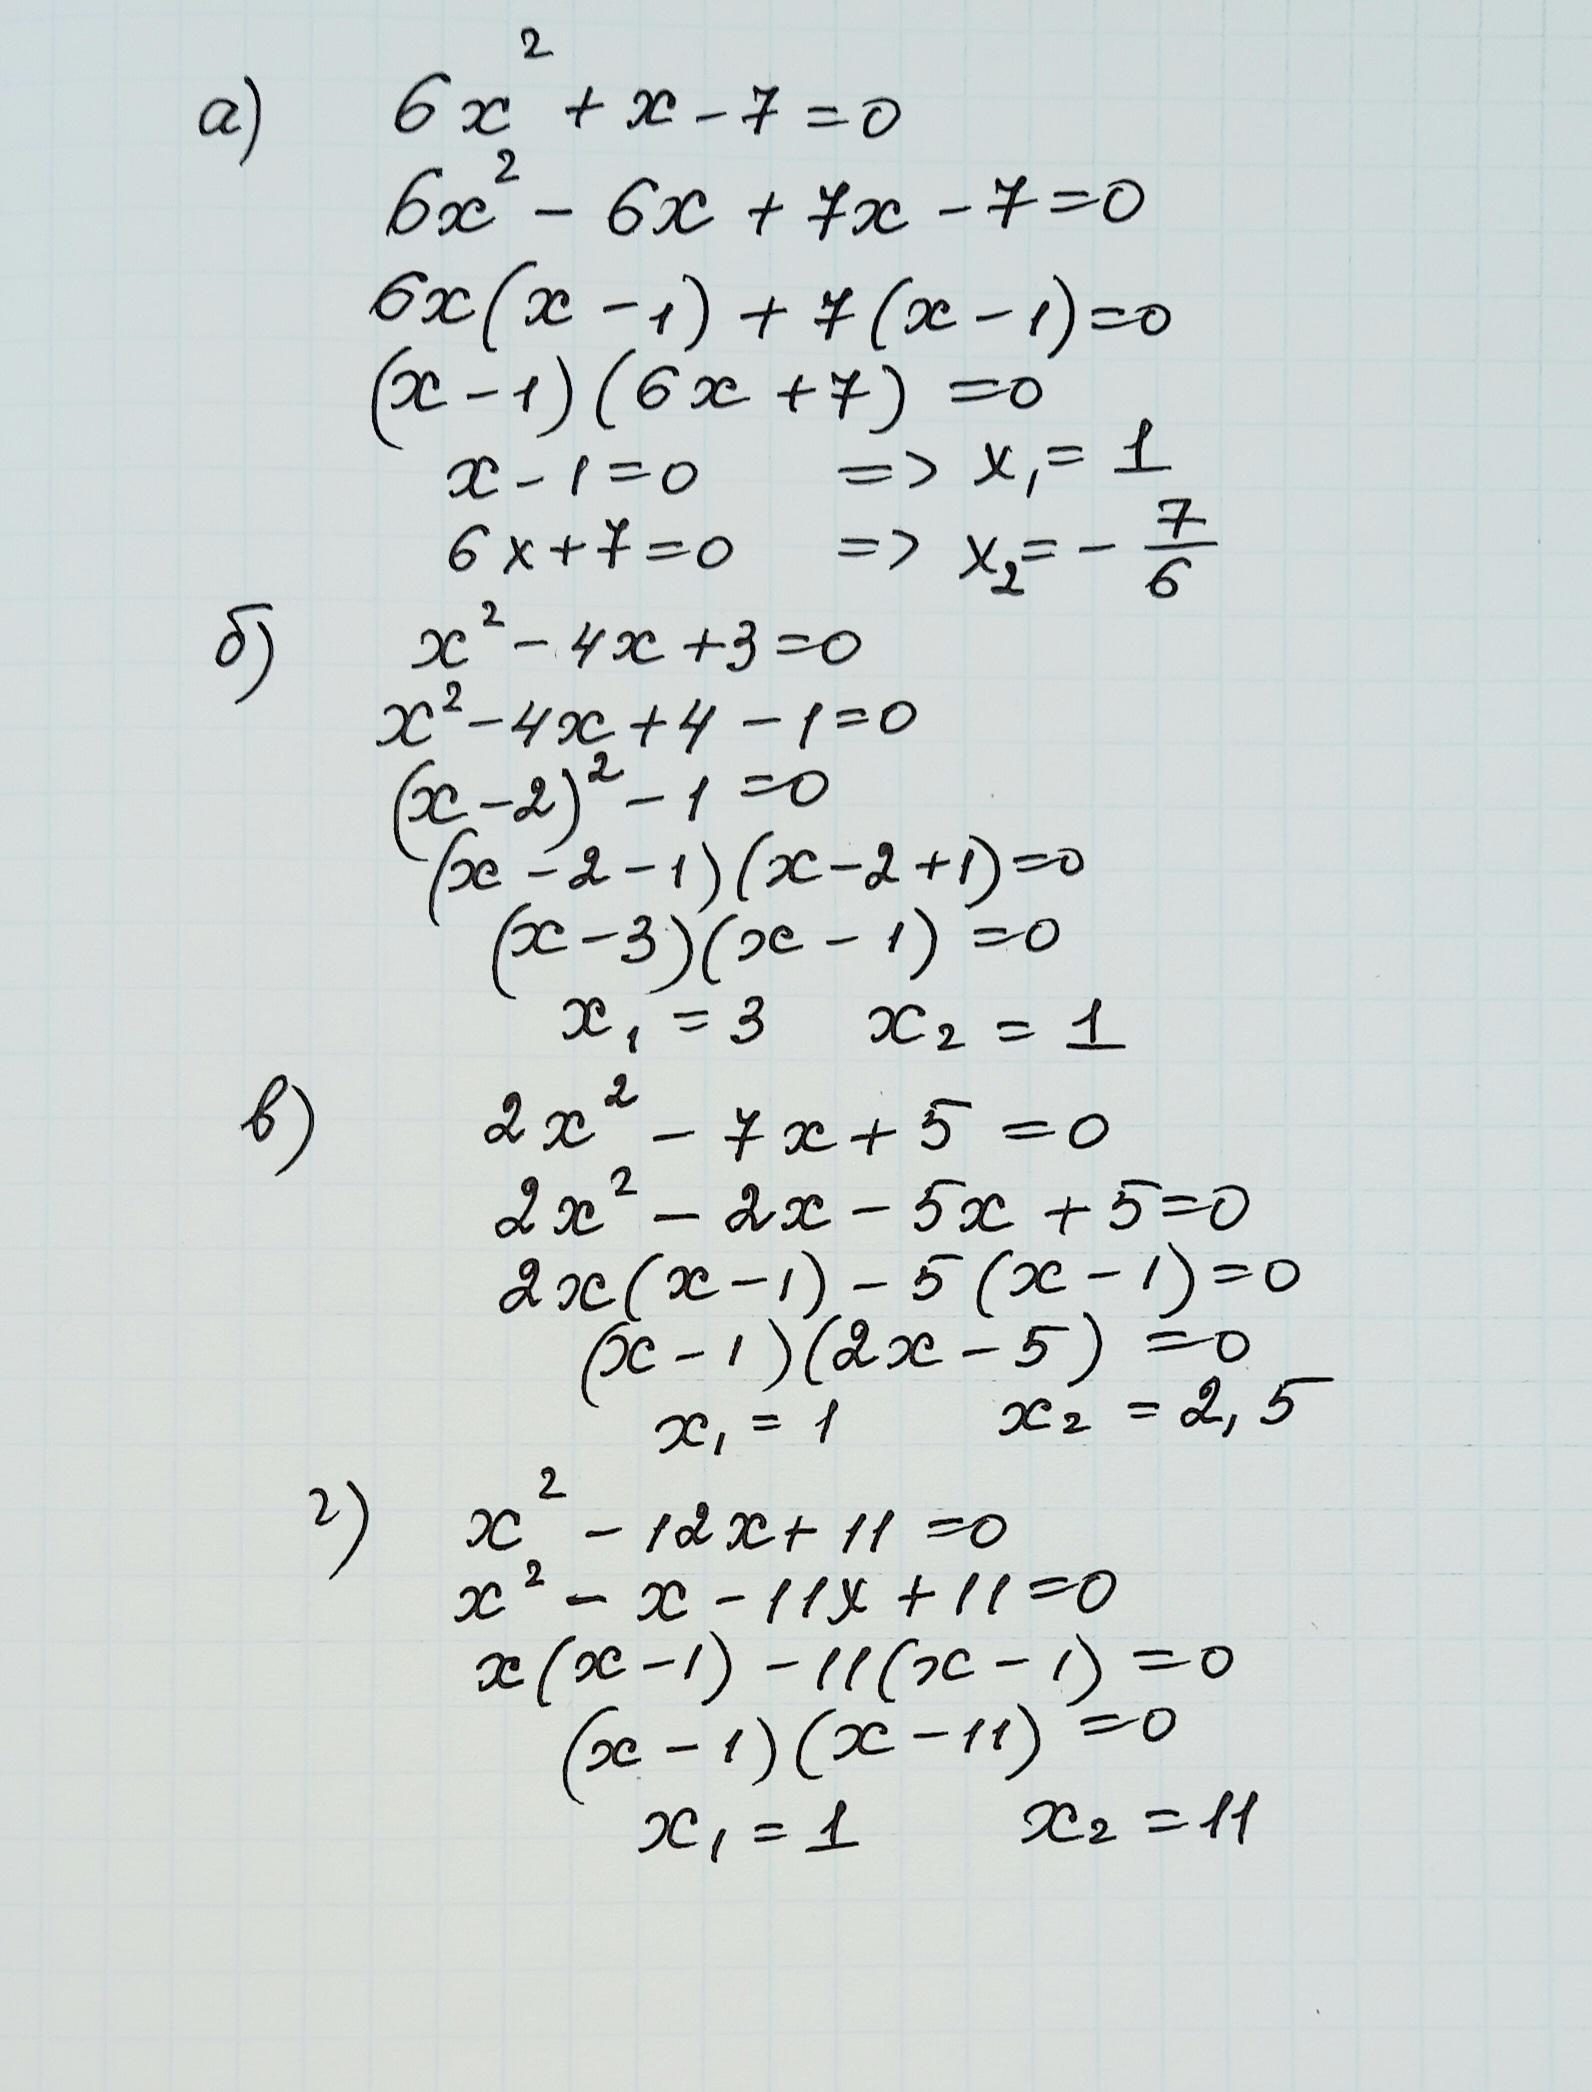 а) 6x² + x - 7 = 0
6x² - 6x + 7x - 7 = 0
6x(x - 1) + 7(x - 1) = 0
(x - 1)(6x + 7) = 0
x - 1 = 0 => x₁ = 1
6x + 7 = 0 => x₂ = - 7/6
б) x² - 4x + 3 = 0
x² - 4x + 4 - 1 = 0
(x - 2)² - 1 = 0
(x - 2 - 1)(x - 2 + 1) = 0
(x - 3)(x - 1) = 0
x₁ = 3 x₂ = 1
в) 2x² - 7x + 5 = 0
2x² - 2x - 5x + 5 = 0
2x(x - 1) - 5(x - 1) = 0
(x - 1)(2x - 5) = 0
x₁ = 1 x₂ = 2,5
г) x² - 12x + 11 = 0
x² - x - 11x + 11 = 0
x(x - 1) - 11(x - 1) = 0
(x - 1)(x - 11) = 0
x₁ = 1 x₂ = 11